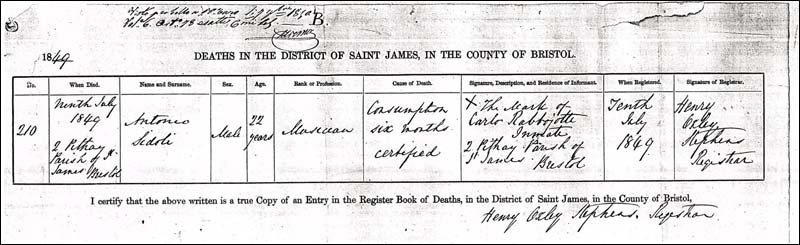 B.
DEATHS IN THE DISTRICT OF SAINT JAMES, IN THE COUNTY OF BRISTOL.
1849
No. When Died. Name and Surname. Sex. Age. Rank or Profession. Cause of Death. Signature, Description, and Residence of Informant. When Registered. Signature of Registrar.
210
Ninth July
1849
2 Pithay
Parish of St
James Bristol
Antonio
Sidoli
Male
22
years
Musician
Consumption
six months
certified
X The Mark of
Carlo Rabbajotte
Inmate
2 Pithay Parish of
St James Bristol
Tenth
July
1849.
Henry
Oxley
Stephens
Registrar
I certify that the above written is a true Copy of an Entry in the Register Book of Deaths, in the District of Saint James, in the County of Bristol,
Henry Oxley Stephens. Registrar